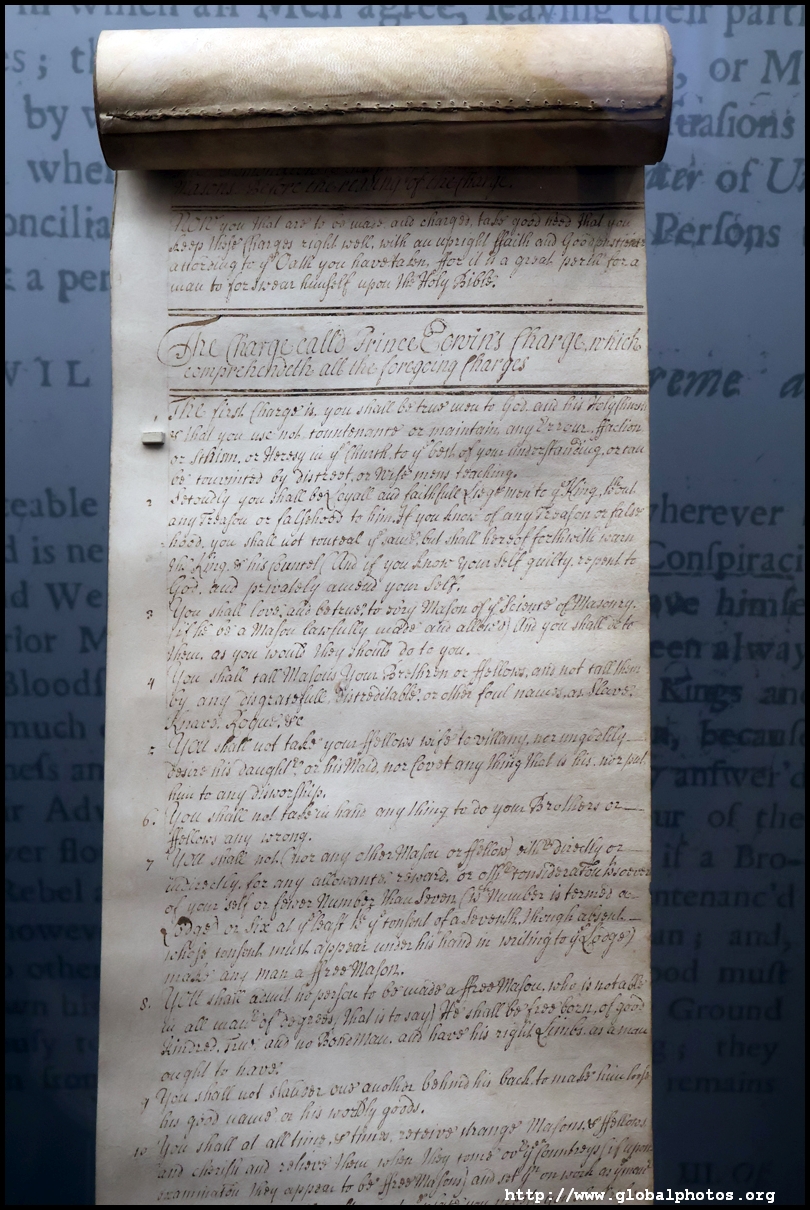 Masons before the reading of the Charge.
NOW you that are to be made, and charged, take good heed that you
keep these Charges right well, with an upright ffaith and Good
according to yᵉ Oath you have taken, ffor it is a great perill for a
man to forswear himself upon the Holy Bible.
The Charge calld Prince Edwin's Charge, which
comprehendeth all the foregoing Charges
1 The first Charge is, you shall be true men to God, and his Holy Church
& that you use not, countenance or maintain any Errour, ffaction
or Schism, or Heresy in yᵉ Church, to yᵉ best of your understanding, or can
be convinced by discreet, or Wise mens teaching.
2 Secondly you shall be Loyall and faithfull Liege men to yᵉ King, wᵗʰout
any Treason or falsehood to him. If you know of any Treason or false-
hood, you shall not conceal yᵉ same, but shall hereof forthwith warn
the King, & his Councel; And if you know your self guilty, repent to
God, and privately amend your self.
3 You shall love, and be true, to every Mason of yᵉ Science of Masonry.
(if he be a Mason lawfully made and allow'd) And you shall do to
them, as you would they should do to you.
4 You shall call Masons Your Brethren or ffellows, and not call them
by any disgracefull, discreditable, or other foul names, as Slave,
Knave, Rogue, &c
5 You shall not take your ffellows wife to villany, nor ungodlily
desire his daughtʳ or his Maid, nor Covet any thing that is his, nor put
him to any disworship.
6. You shall not take in hand any thing to do your Brothers or
ffellows any wrong.
7 You shall not, (nor any other Mason, or ffellow) eithʳ directly or
indirectly, for any allowance, reward, or othʳ consideration
of your self or fewer Number than Seven (wᶜʰ Number is termed a
Lodge) or Six at yᵉ least wᵗʰ yᵉ consent of a Seventh, though absent
(whose consent must appear under his hand in writing to yᵉ Lodge)
make any man a ffree Mason.
8. You shall admit no person to be made a ffree Mason, who is not able
in all mannʳ of degrees, that is to say) He shall be free born, of good
Kindred, True, and no Bond Man, and have his right Limbs, as a man
ought to have.
9 You shall not slander one another behind his back, to make him loose
his good name or his worldly goods.
10 You shall at all time, & times, receive strange Masons, & ffellows
and cherish and relieve them when they come ovʳ yᵉ Countreys (if upon
examination they appear to be ffree Masons) and set yᵐ on work
in which all Men agree, leaving their parti
or M
by
uaſions
ter of U
onciliat
Perſons
VIL
reme a
herever
d is ne
Conſpiraci
d We
himſe
ior M
een alway
Bloodſ
Kings and
much
, becauſe
neſs an
anſwer'd
ar Adv
our of the
ver flo
if a Bro-
ebel a
ntenanc'd
owev
; and,
othe
muſt
Ground
; they
remains
III Of
http://www.globalphotos.org